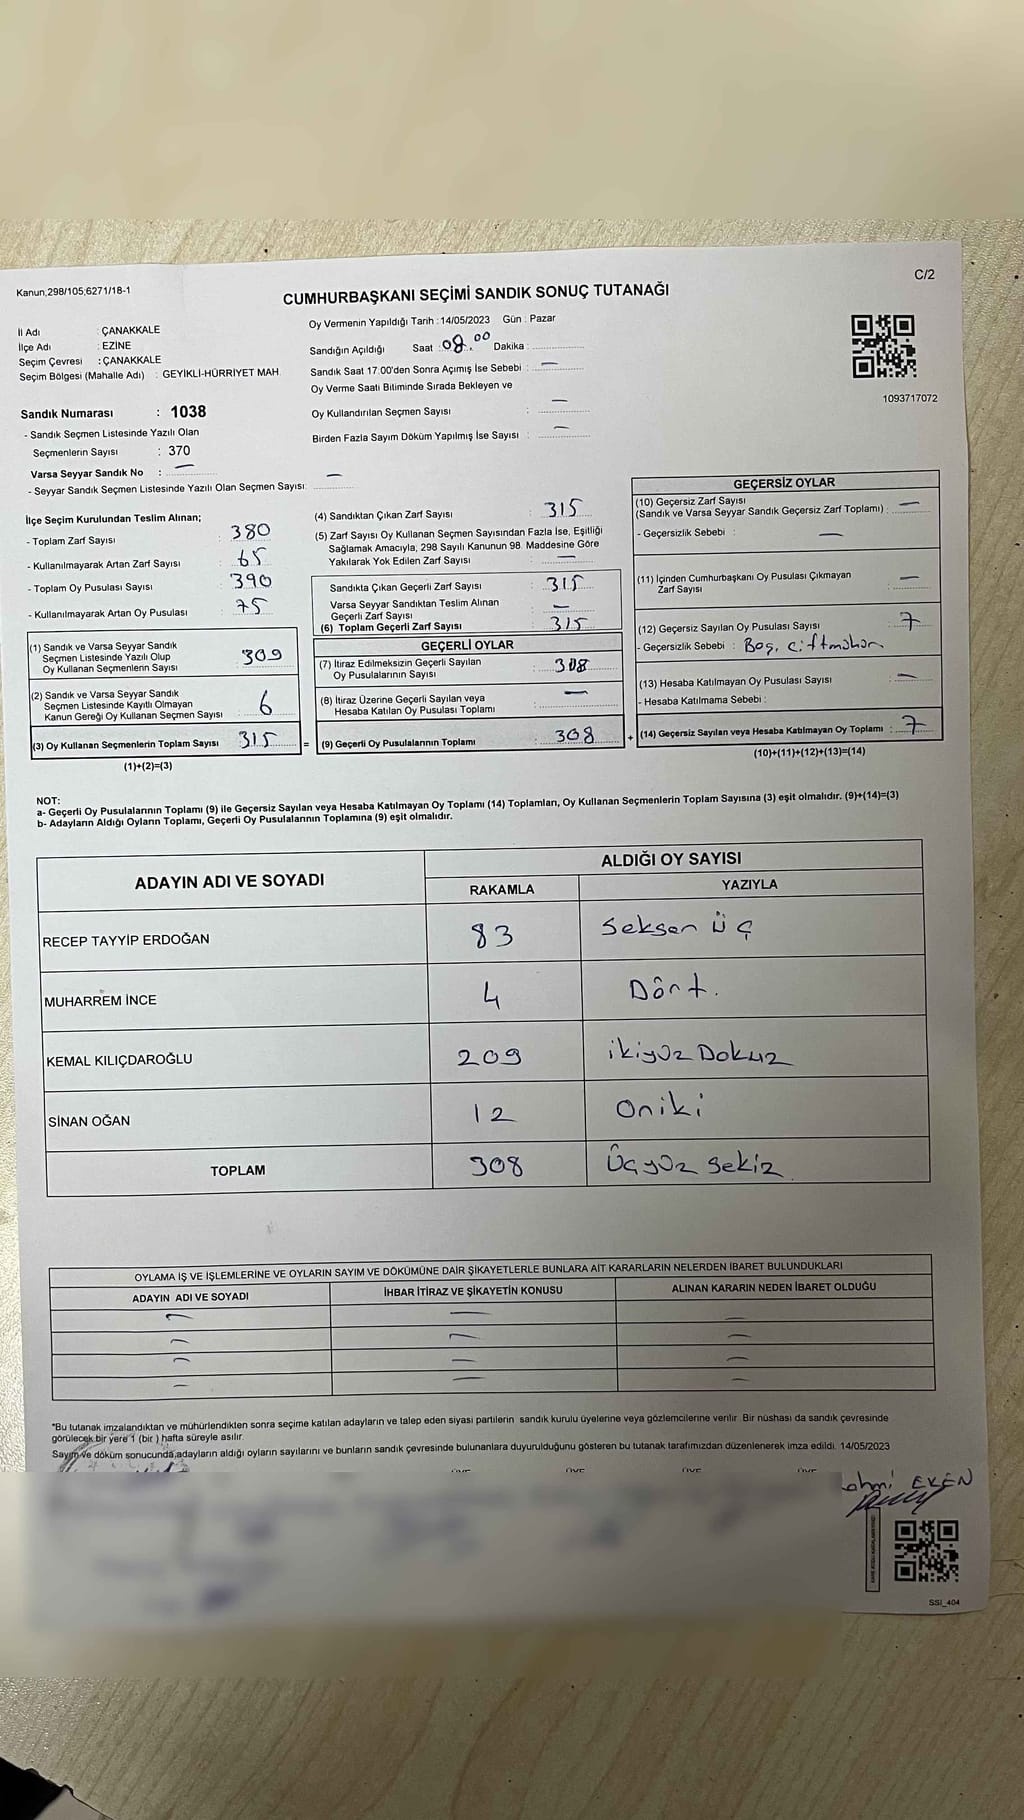 Kanun;298/105;6271/18-1
C/2
CUMHURBAŞKANI SEÇİMİ SANDIK SONUÇ TUTANAĞI
İl Adı : ÇANAKKALE
İlçe Adı : EZİNE
Seçim Çevresi : ÇANAKKALE
Seçim Bölgesi (Mahalle Adı) : GEYİKLİ-HÜRRİYET MAH
Oy Vermenin Yapıldığı Tarih : 14/05/2023 Gün : Pazar
Sandığın Açıldığı Saat : 08.00 Dakika :
Sandık Saat 17:00'den Sonra Açımış İse Sebebi : —
Oy Verme Saati Bitiminde Sırada Bekleyen ve
Oy Kullandırılan Seçmen Sayısı : —
Birden Fazla Sayım Döküm Yapılmış İse Sayısı : —
1093717072
Sandık Numarası : 1038
- Sandık Seçmen Listesinde Yazılı Olan
Seçmenlerin Sayısı : 370
Varsa Seyyar Sandık No : —
- Seyyar Sandık Seçmen Listesinde Yazılı Olan Seçmen Sayısı: —
İlçe Seçim Kurulundan Teslim Alınan;
- Toplam Zarf Sayısı : 380
- Kullanılmayarak Artan Zarf Sayısı : 65
- Toplam Oy Pusulası Sayısı : 390
- Kullanılmayarak Artan Oy Pusulası : 75
(1) Sandık ve Varsa Seyyar Sandık
Seçmen Listesinde Yazılı Olup
Oy Kullanan Seçmenlerin Sayısı : 309
(2) Sandık ve Varsa Seyyar Sandık
Seçmen Listesinde Kayıtlı Olmayan
Kanun Gereği Oy Kullanan Seçmen Sayısı : 6
(3) Oy Kullanan Seçmenlerin Toplam Sayısı : 315
(1)+(2)=(3)
(4) Sandıktan Çıkan Zarf Sayısı : 315
(5) Zarf Sayısı Oy Kullanan Seçmen Sayısından Fazla İse, Eşitliği
Sağlamak Amacıyla; 298 Sayılı Kanunun 98. Maddesine Göre
Yakılarak Yok Edilen Zarf Sayısı : —
Sandıkta Çıkan Geçerli Zarf Sayısı : 315
Varsa Seyyar Sandıktan Teslim Alınan
Geçerli Zarf Sayısı : —
(6) Toplam Geçerli Zarf Sayısı : 315
GEÇERLİ OYLAR
(7) İtiraz Edilmeksizin Geçerli Sayılan
Oy Pusulalarının Sayısı : 308
(8) İtiraz Üzerine Geçerli Sayılan veya
Hesaba Katılan Oy Pusulası Toplamı : —
= (9) Geçerli Oy Pusulalarının Toplamı : 308
GEÇERSİZ OYLAR
(10) Geçersiz Zarf Sayısı
(Sandık ve Varsa Seyyar Sandık Geçersiz Zarf Toplamı) : —
- Geçersizlik Sebebi : —
(11) İçinden Cumhurbaşkanı Oy Pusulası Çıkmayan
Zarf Sayısı : —
(12) Geçersiz Sayılan Oy Pusulası Sayısı : 7
- Geçersizlik Sebebi : Boş, çiftmühür
(13) Hesaba Katılmayan Oy Pusulası Sayısı : —
- Hesaba Katılmama Sebebi :
+ (14) Geçersiz Sayılan veya Hesaba Katılmayan Oy Toplamı : 7
(10)+(11)+(12)+(13)=(14)
NOT:
a- Geçerli Oy Pusulalarının Toplamı (9) ile Geçersiz Sayılan veya Hesaba Katılmayan Oy Toplamı (14) Toplamları, Oy Kullanan Seçmenlerin Toplam Sayısına (3) eşit olmalıdır. (9)+(14)=(3)
b- Adayların Aldığı Oyların Toplamı, Geçerli Oy Pusulalarının Toplamına (9) eşit olmalıdır.
ADAYIN ADI VE SOYADI
ALDIĞI OY SAYISI
RAKAMLA YAZIYLA
RECEP TAYYİP ERDOĞAN 83 Seksen Üç
MUHARREM İNCE 4 Dört.
KEMAL KILIÇDAROĞLU 209 ikiyüz Dokuz
SİNAN OĞAN 12 Oniki
TOPLAM 308 Üçyüz Sekiz
OYLAMA İŞ VE İŞLEMLERİNE VE OYLARIN SAYIM VE DÖKÜMÜNE DAİR ŞİKAYETLERLE BUNLARA AİT KARARLARIN NELERDEN İBARET BULUNDUKLARI
ADAYIN ADI VE SOYADI İHBAR İTİRAZ VE ŞİKAYETİN KONUSU ALINAN KARARIN NEDEN İBARET OLDUĞU
— — —
— — —
— — —
— — —
*Bu tutanak imzalandıktan ve mühürlendikten sonra seçime katılan adayların ve talep eden siyasi partilerin sandık kurulu üyelerine veya gözlemcilerine verilir. Bir nüshası da sandık çevresinde
görülecek bir yere 1 (bir) hafta süreyle asılır.
Sayım ve döküm sonucunda adayların aldığı oyların sayılarını ve bunların sandık çevresinde bulunanlara duyurulduğunu gösteren bu tutanak tarafımızdan düzenlenerek imza edildi. 14/05/2023
EKEN
SSI_404